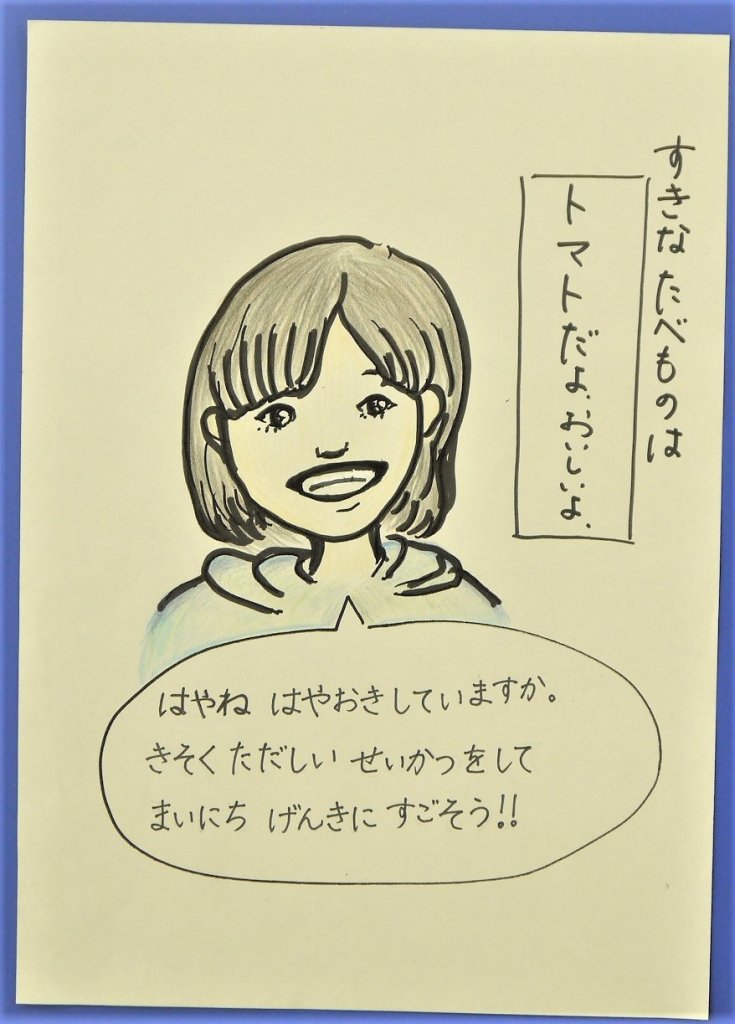 すきなたべものは
トマトだよ、おいしいよ、
はやね はやおきしていますか。
きそくただしい せいかつをして
まいにち げんきに すごそう!!